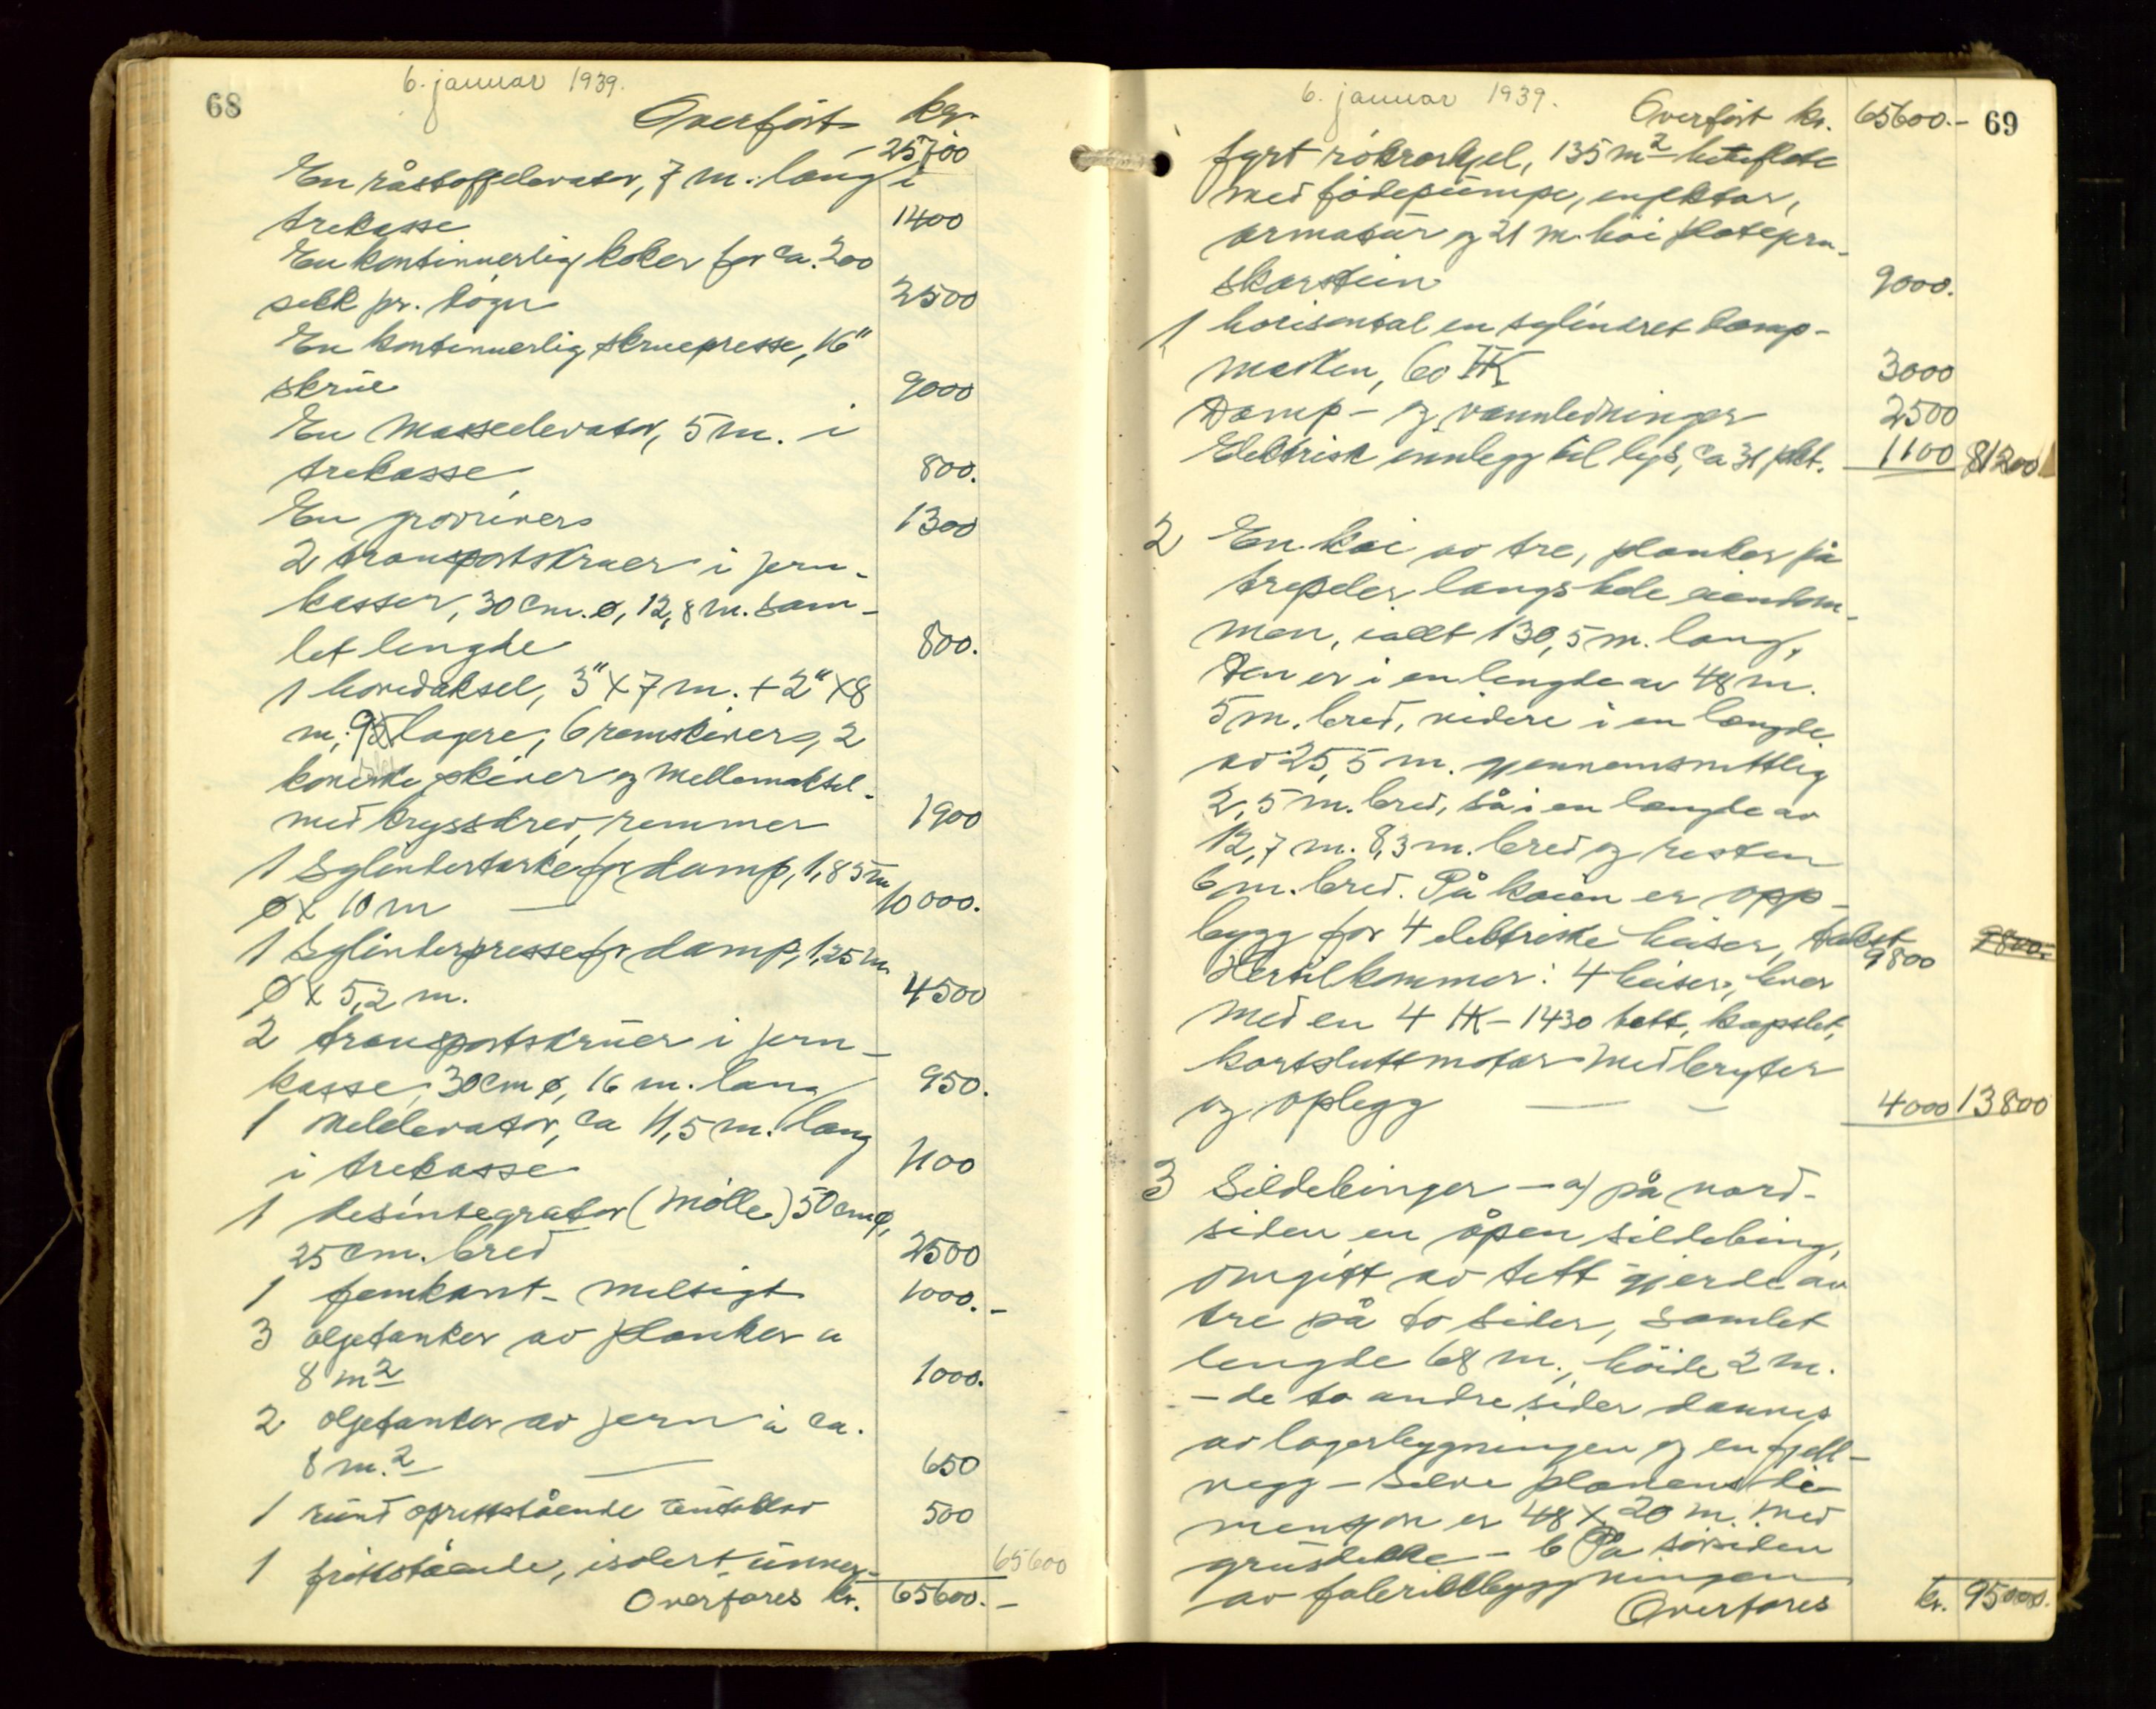 68
6. januar 1939.
Overført kr.
25700
En råstoffelevator, 7 m. lang i
trekasse 1400
En kontinuerlig koker for ca. 200
sekk pr. døgn 2500
En kontinuerlig skruepresse, 16"
skrue 9000
En masseelevator, 5 m. i
trekasse 800.
En grovriver 1300
2 transportskruer i jern-
kasser, 30 cm. ø, 12,8 m. sam-
let lengde 800.
1 hovedaksel, 3" x 7 m. + 2" x 8
m, 9 lagere, 6 remskiver, 2
koniske skiver og mellemaksel
med kryssdrev, remmer 1900
1 Sylindertørke for damp, 1,85 m
ø x 10 m — 10000.
1 Sylinderpresse for damp, 1,25 m
ø x 5,2 m. 4500
2 transportskruer i jern-
kasse, 30 cm ø, 16 m. lang 950.
1 melelevator, ca 11,5 m. lang
i trekasse 1100
1 desintegrator (Mølle) 50 cm ø,
25 cm. bred 2500
1 femkant- melsigt 1000.-
3 oljetanker av planker a
8 m² 1000.
2 oljetanker av jern à ca.
8 m.² — 650
1 rund oprettstående 500
1 frittstående, isolert, unner-
65600
Overføres kr. 65600.-
6. januar 1939.
69
Overført kr. 65600.-
fyrt rökrørkjel, 135 m² heteflate
med fødepumpe, injektor,
armatur og 21 m. høi platejern-
skorstein 9000.
1 horisontal en sylindret damp-
maskin, 60 HK 3000
Damp- og vannledninger 2500
Elektrisk innlegg til lys, ca 31 pkt. 1100 81200
2 En kai av tre, planker på
trepeler langs hele eiendom-
men, ialt 130,5 m. lang,
Den er i en lengde av 48 m.
5 m. bred, videre i en længde
av 25,5 m. gjennemsnittlig
2,5 m. bred, så i en længde av
12,7 m. 8,3 m. bred og resten
6 m. bred. På kaien er opp-
bygg for 4 elektriske heiser, takst 9800 9800.
Hertil kommer: 4 heiser, hver
med en 4 HK - 1430 tett, kapslet,
kortsluttmotor med bryter
og oplegg — — 4000 13800
3 Sildebinger - a) på nord-
siden en åpen sildebing,
omgitt av tett gjerde av
tre på to sider, samlet
lengde 68 m., höide 2 m.
- de to andre sider dannes
av lagerbygningen og en fjell-
vegg - Selve planens di-
mensjon er 48 x 20 m. med
grusdekke - b På sørsiden
av fabrikkbygningen
Overføres kr. 95000.